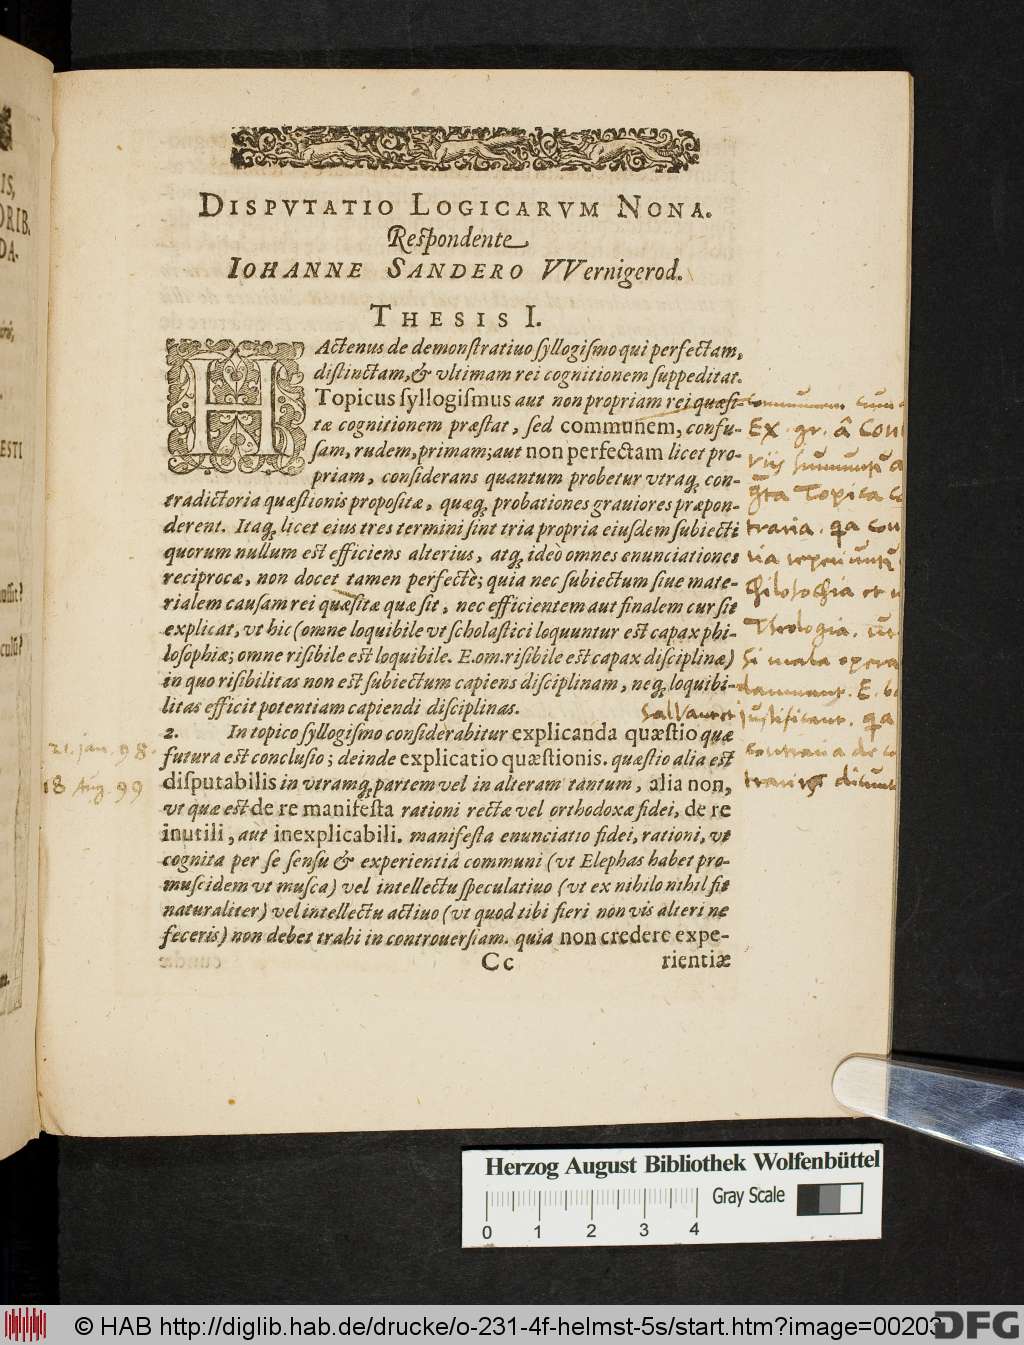 DISPVTATIO LOGICARVM NONA.
Respondente
IOHANNE SANDERO VVernigerod.
THESIS I.
HActenus de demonstratiuo syllogismo qui perfectam,
distinctam, & vltimam rei cognitionem suppeditat.
Topicus syllogismus aut non propriam rei quæsi-
tæ cognitionem præstat, sed communem, confu-
sam, rudem, primam; aut non perfectam licet pro-
priam, considerans quantum probetur vtraq; con-
tradictoria quæstionis propositæ, quæq; probationes grauiores præpon-
derent. Itaq; licet eius tres termini sint tria propria eiusdem subiecti
quorum nullum est efficiens alterius, atq; ideò omnes enunciationes
reciprocæ, non docet tamen perfectè; quia nec subiectum siue mate-
rialem causam rei quæsitæ quæ sit, nec efficientem aut finalem cur sit
explicat, vt hic (omne loquibile vt scholastici loquuntur est capax phi-
losophiæ; omne risibile est loquibile. E. om. risibile est capax disciplinæ)
in quo risibilitas non est subiectum capiens disciplinam, neq; loquibi-
litas efficit potentiam capiendi disciplinas.
2. In topico syllogismo consideratur explicanda quæstio quæ
futura est conclusio; deinde explicatio quæstionis. quæstio alia est
disputabilis in vtramq; partem vel in alteram tantum, alia non,
vt quæ est de re manifesta rationi rectæ vel orthodoxæ fidei, de re
inutili, aut inexplicabili. manifesta enunciatio fidei, rationi, vt
cognita per se sensu & experientiâ communi (vt Elephas habet pro-
muscidem vt musca) vel intellectu speculatiuo (vt ex nihilo nihil fit
naturaliter) vel intellectu actiuo (vt quod tibi fieri non vis alteri ne
feceris) non debet trahi in controuersiam. quia non credere expe-
Cc rientiæ
Ex. gr. â Con
Topica
traria. qa Con
Philosophia et
Theologia.
si mala opera
damnant. E. b
justificant. qa
contraria de co
21. Jan. 98.
18 Aug. 99
IS,
ORIB.
DA-
ESTI
Herzog August Bibliothek Wolfenbüttel
Gray Scale
0 1 2 3 4
© HAB http://diglib.hab.de/drucke/o-231-4f-helmst-5s/start.htm?image=00203
DFG